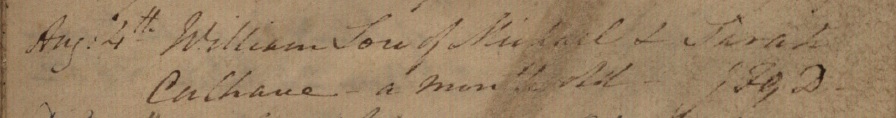 Aug: 4th William Son of Michael & Sarah
Culhane - a month old -